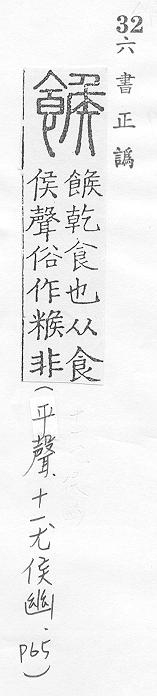 32
六書正譌
餱
餱乾食也从食
侯聲俗作糇非
(平聲、十一尤侯幽.P65)